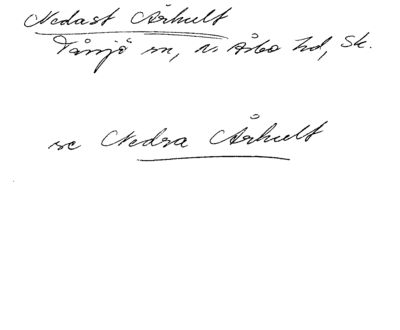 Nedast Århult
Tåssjö sn, N. Åsbo hd, Sk.
se Nedra Århult